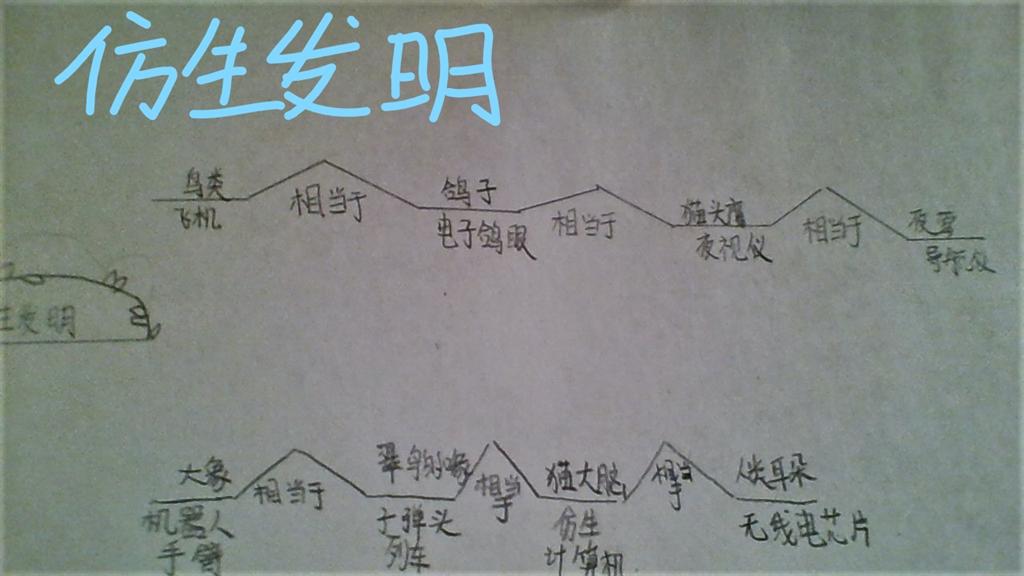 仿生发明
鸟类 相当于 鸽子 相当于 猫头鹰 相当于
飞机 电子鸽眼 夜视仪 导航仪
生发明
大象 相当于 翠鸟的嘴 相当于 猫大脑 相当于 人类耳朵
机器人 子弹头 仿生 无线电芯片
手臂 列车 计算机